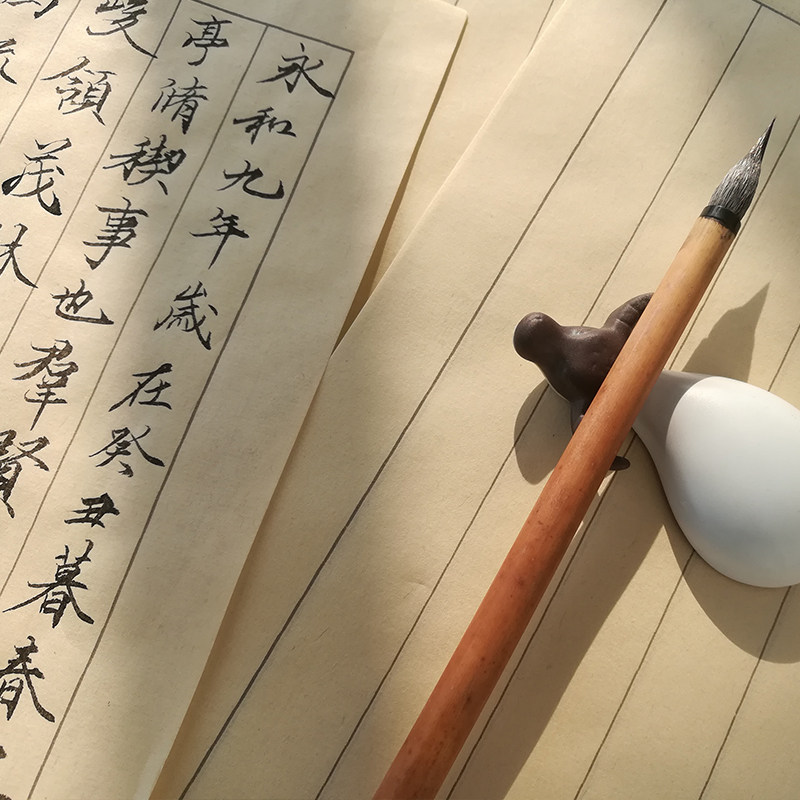 永和九年歲在癸丑暮春
亭脩稧事也羣賢
峻領茂